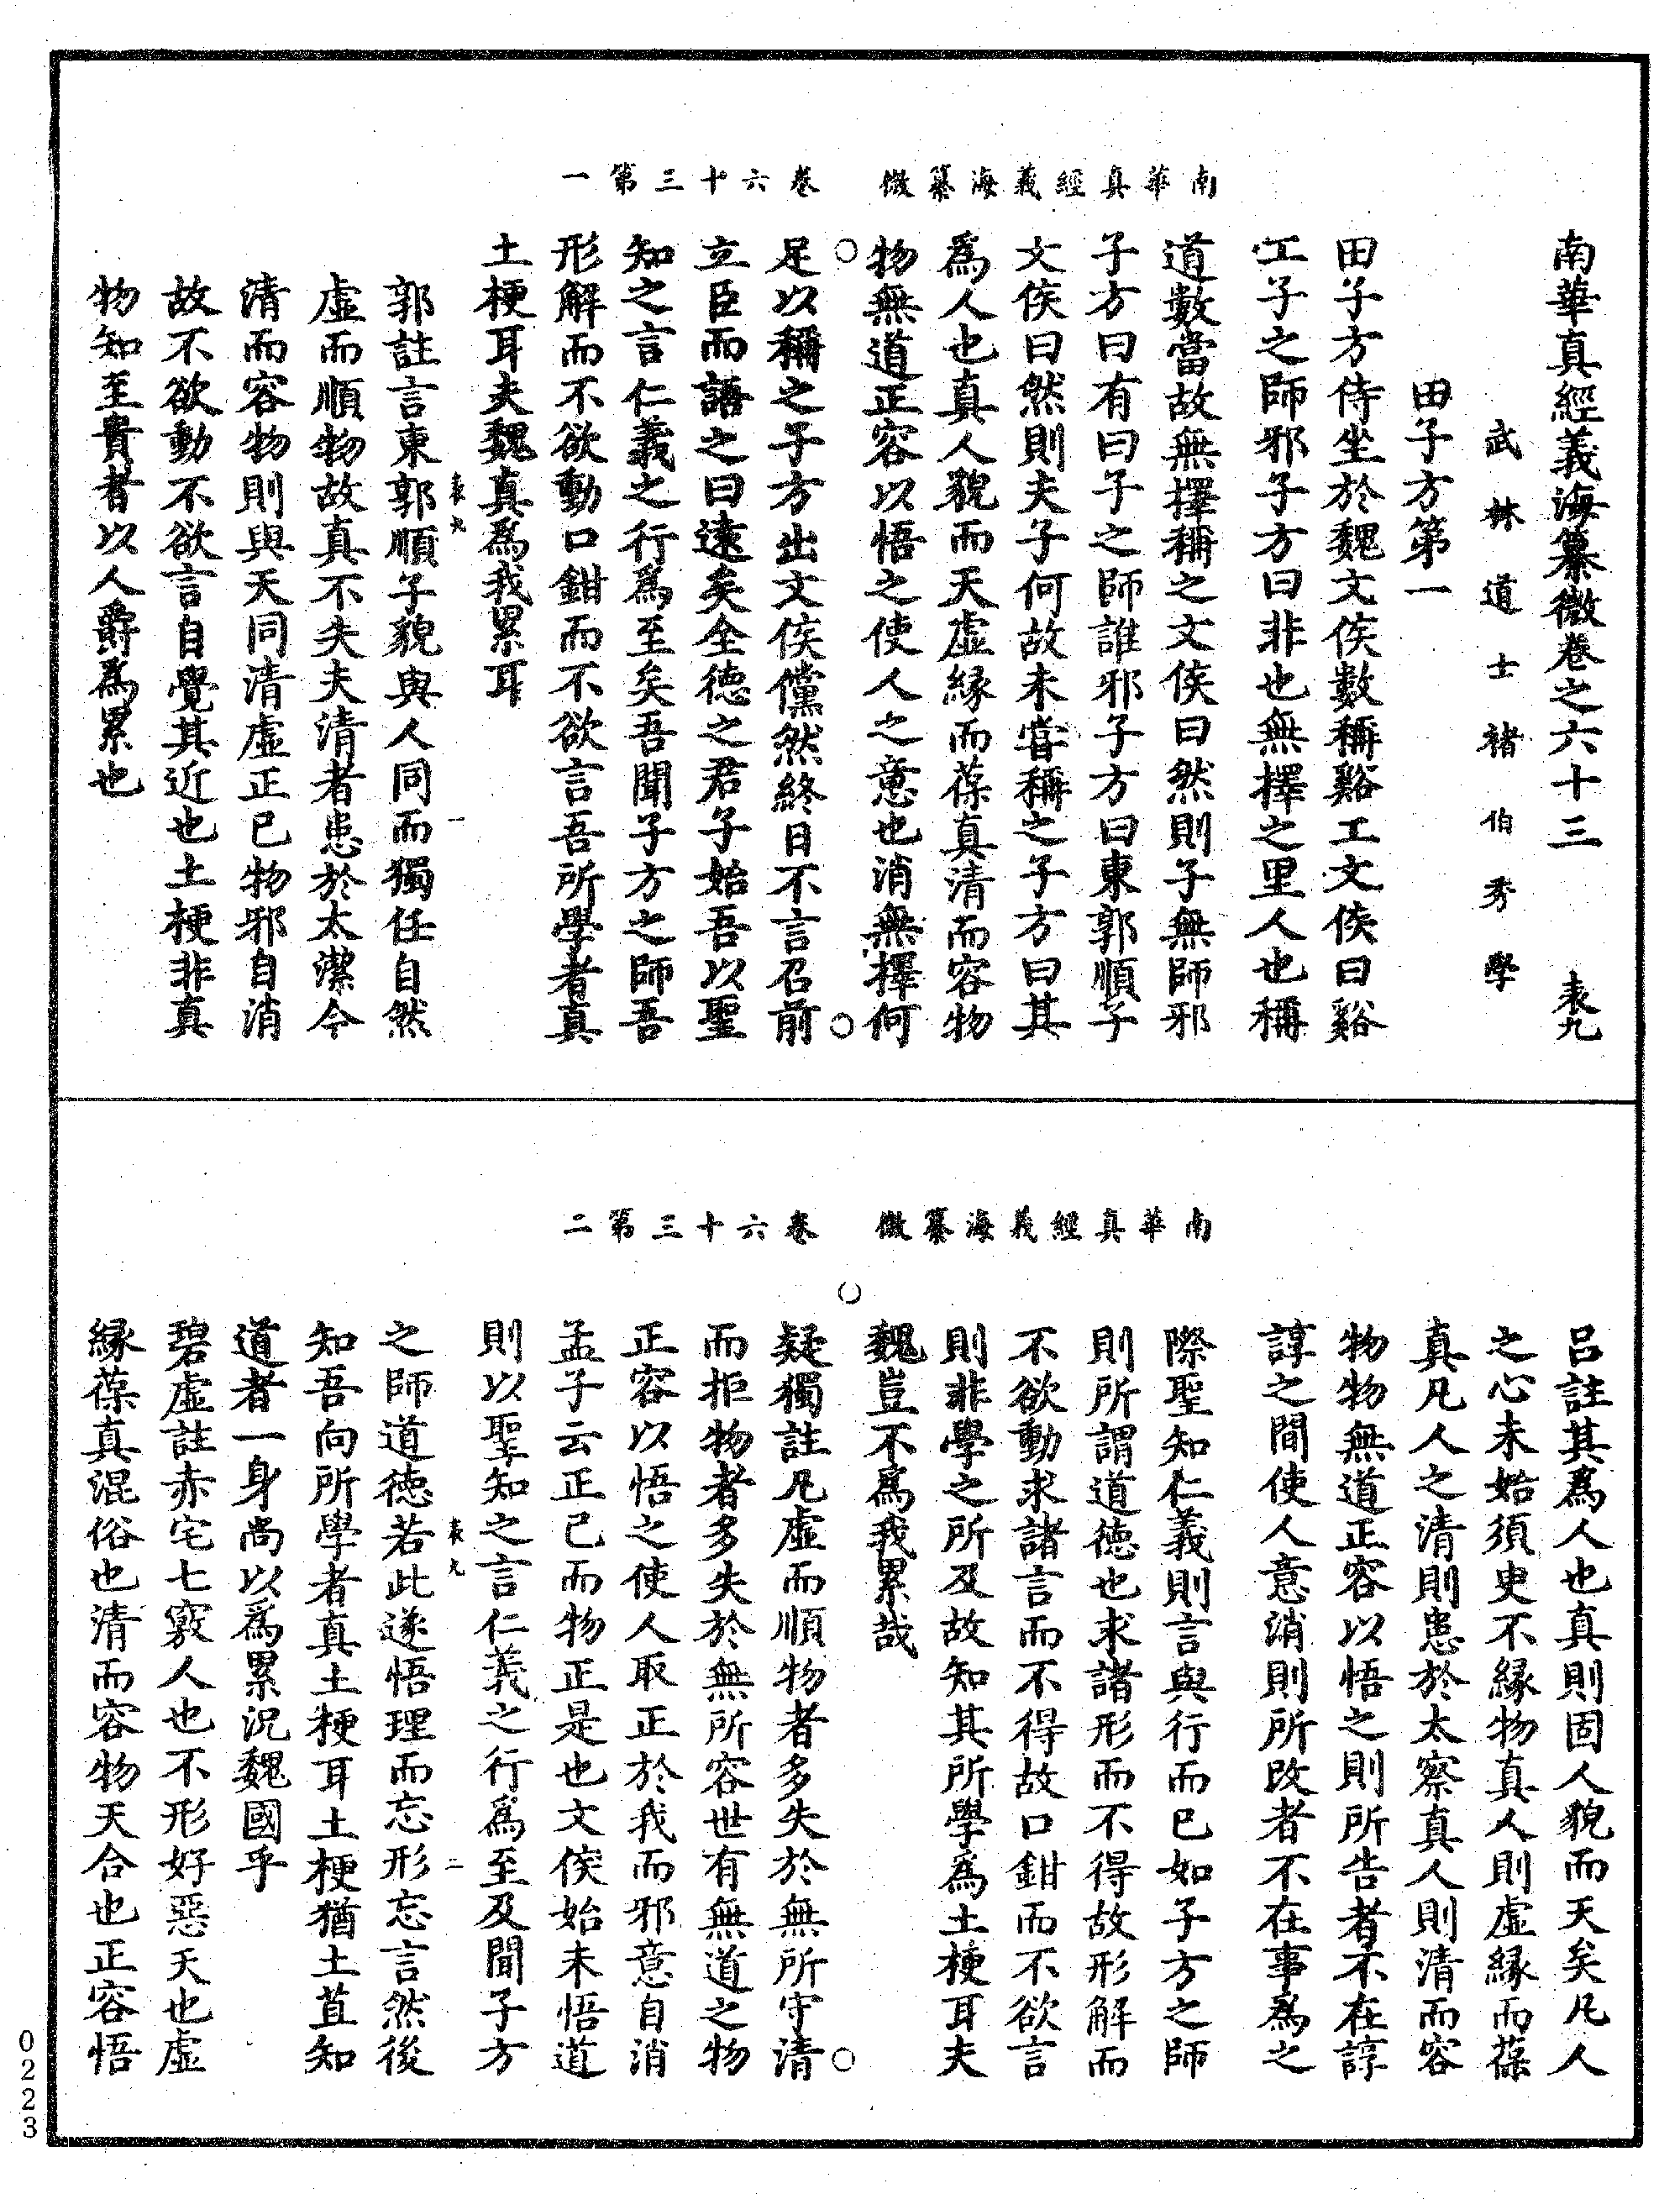 南華真經義海纂微卷之六十三　表九
武林道士褚伯秀學
田子方第一
田子方侍坐於魏文侯數稱谿工文侯曰谿
工子之師邪子方曰非也無擇之里人也稱
道數當故無擇稱之文侯曰然則子無師邪
子方曰有曰子之師誰邪子方曰東郭順子
文侯曰然則夫子何故未嘗稱之子方曰其
為人也真人貌而天虛緣而葆真清而容物
物無道正容以悟之使人之意也消無擇何
南華真經義海纂微　卷六十三第一
足以稱之子方出文侯儻然終日不言召前
立臣而語之曰遠矣全德之君子始吾以聖
知之言仁義之行為至矣吾聞子方之師吾
形解而不欲動口鉗而不欲言吾所學者真
土梗耳夫魏真為我累耳
表九　一
郭註言東郭順子貌與人同而獨任自然
虛而順物故真不失夫清者患於太潔今
清而容物則與天同清虛正已物邪自消
故不欲動不欲言自覺其近也土梗非真
物知至貴者以人爵為累也
呂註其為人也真則固人貌而天矣凡人
之心未始須史不緣物真人則虛緣而葆
真凡人之清則患於太察真人則清而容
物物無道正容以悟之則所告者不在諄
諄之間使人意消則所改者不在事為之
際聖知仁義則言與行而已如子方之師
則所謂道德也求諸形而不得故形解而
不欲動求諸言而不得故口鉗而不欲言
則非學之所及故知其所學為土梗耳夫
魏豈不為我累哉
南華真經義海纂微　卷六十三第二
疑獨註凡虛而順物者多失於無所守清
而拒物者多失於無所容世有無道之物
正容以悟之使人取正於我而邪意自消
孟子云正己而物正是也文侯始未悟道
則以聖知之言仁義之行為至及聞子方
表九　二
之師道德若此遂悟理而忘形忘言然後
知吾向所學者真土梗耳土梗猶土苴知
道者一身尚以為累況魏國乎
碧虛註赤宅七竅人也不形好惡天也虛
緣葆真混俗也清而容物天合也正容悟
0223